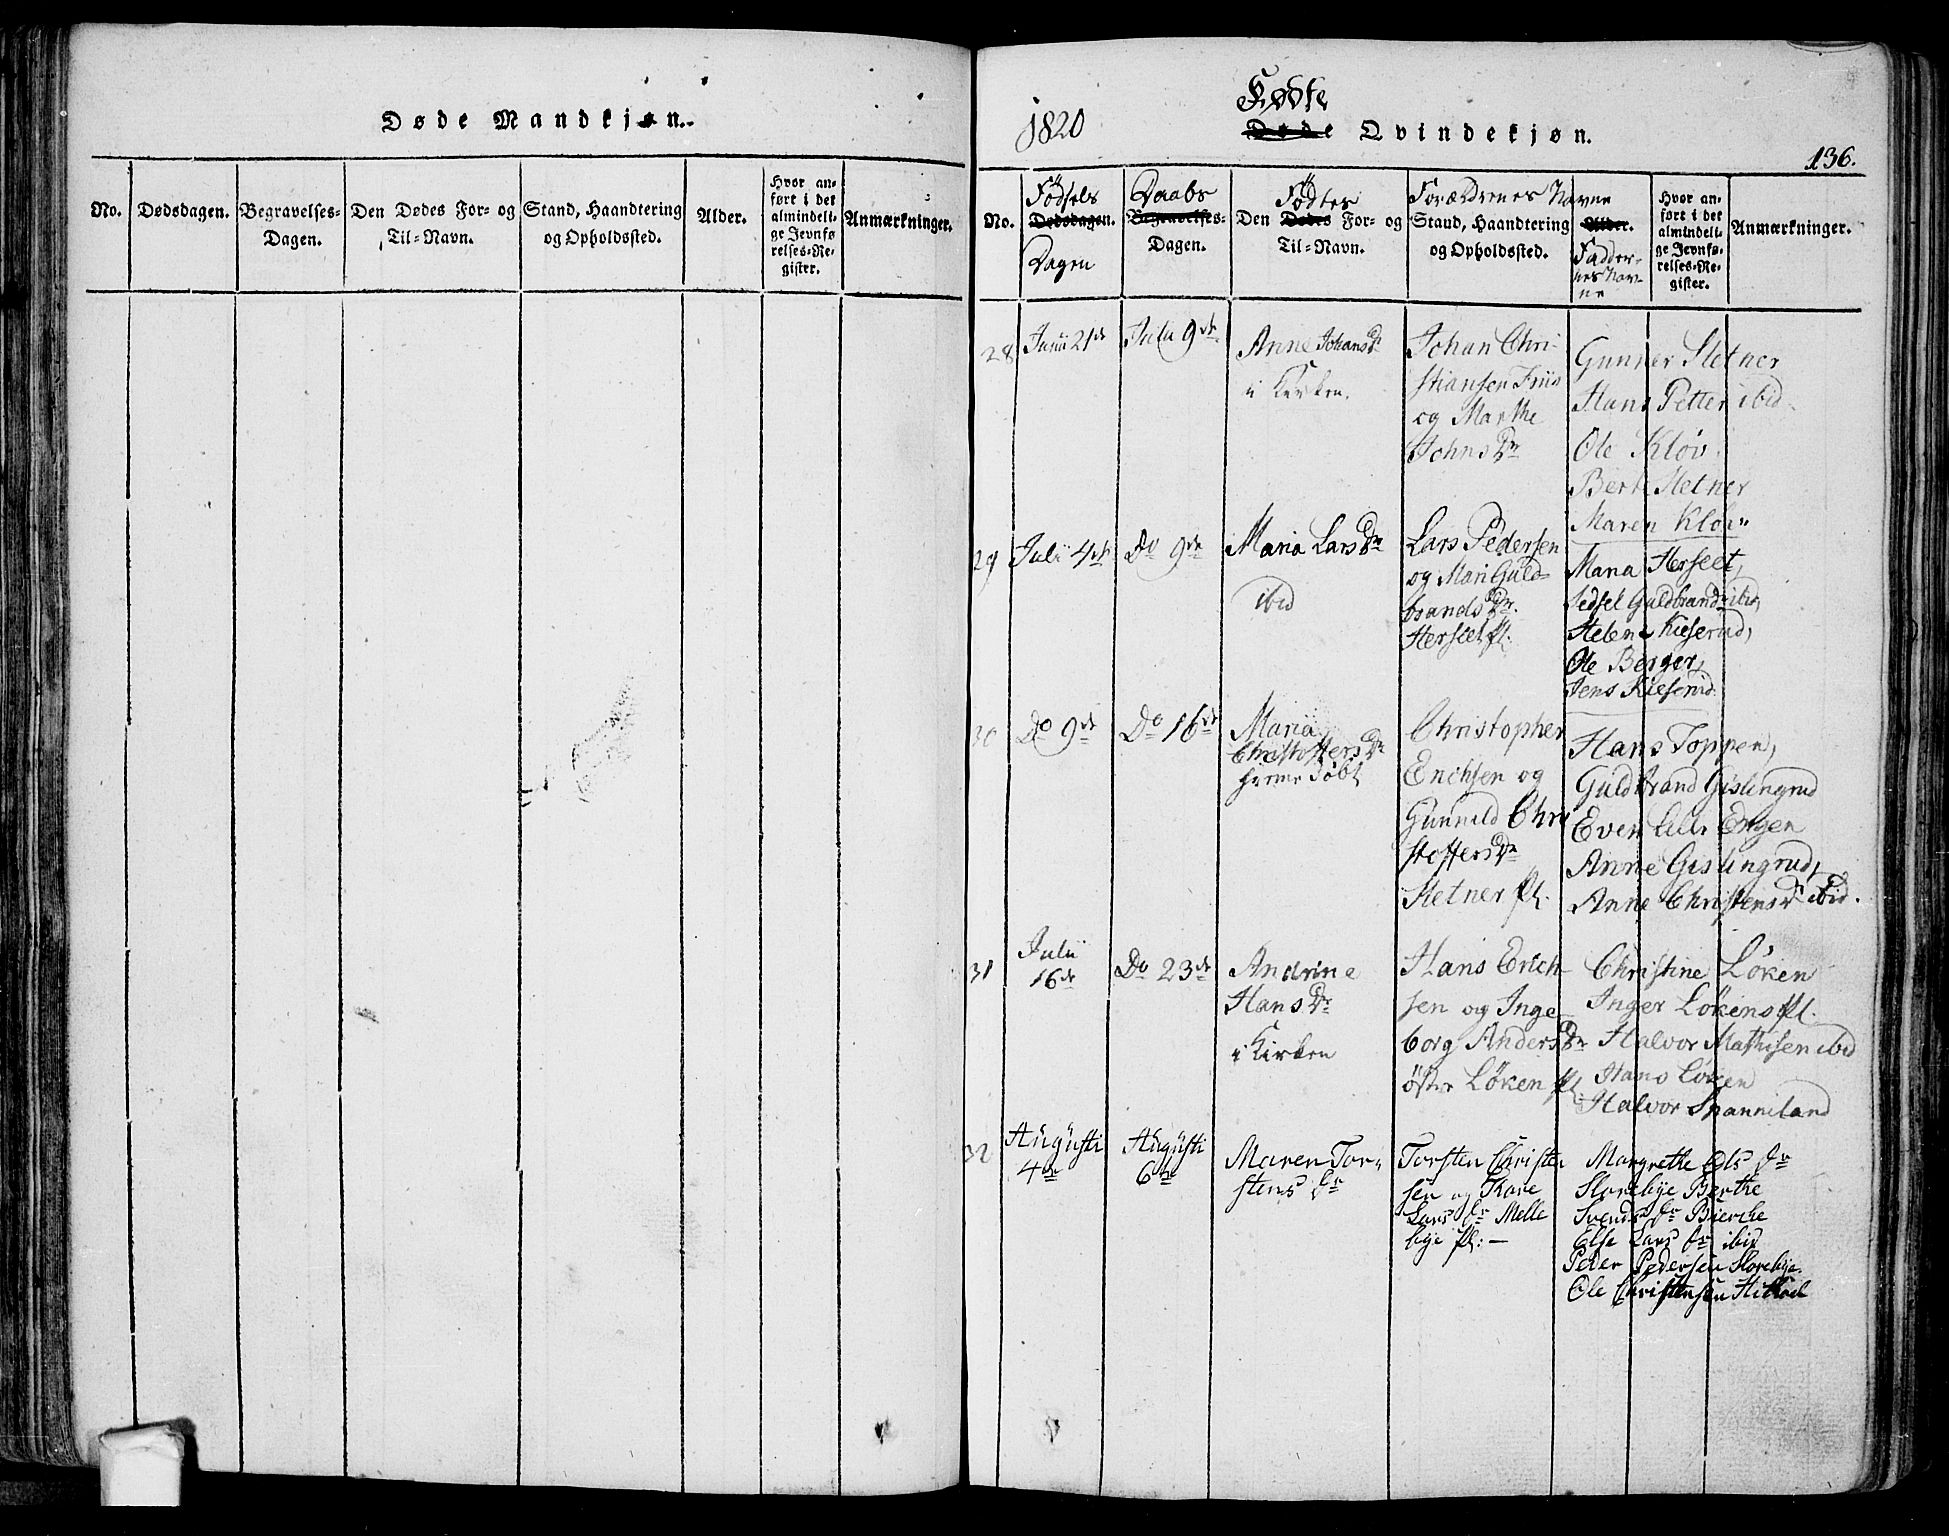 Døde Mandkjøn.
No.
Dødsdagen.
Begravelses-
Dagen.
Den Dødes For- og
Til-Navn.
Stand, Haandtering
og Opholdssted.
Alder.
Hvor an-
ført i det
almindeli-
ge Jevnfø
relses-Re-
gister.
Anmærkninger.
1820
Fødte
Døde Qvindekjøn.
136.
No.
Fødsels
Dødsdagen.
Dagen
Daabs
Begravelses-
Dagen.
Fødtes
Den Dødes For- og
Til-Navn.
Forældrenes Navne
Stand, Haandtering
og Opholdssted.
Alder.
Fadder-
nes Nav-
ne
Hvor an-
ført i det
almindeli-
ge Jevnfø-
relses-Re-
gister.
Anmærkninger.
28
Junii 21de
Julii 9de
Anne Johansdr
i Kirken.
Johan Chri-
stiansen Friis
og Marthe
Johnsdr
Gunner Sletner
Hans Petter ibid.
Ole Kløv.
Berte Sletner
Maren Kløv
29
Julii 4de
Do 9de
Maria Larsdr
ibid
Lars Pedersen
og Mari Guld-
brandsdr.
Herseet pl.
Maria Herseet,
Sedsel Guldbrandsdr ibid,
Helene Kieserud,
Ole Berger,
Jens Kieserud.
30
Do 9de
Do 16de
Maria
Christoffersdr
hjemmedøbt
Christopher
Erichsen og
Gunnild Chri
stoffersdr
Sletner pl.
Hans Toppen,
Guldbrand Gislingrud
Even Lille Engen
Anne Gislingrud,
Anne Christensdr ibid.
31
Julii
16de
Do 23de
Andrine
Hansdr
i Kirken
Hans Erich-
sen og Inge
borg Andersdr
østre Løken pl.
Christine Løken
Inger Løkenspl.
Halvor Mathisen ibid
Hans Løken
Halvor Spanneland
32
Augusti
4de
Augusti
6te
Maren Tor-
stens dr
Torsten Christen
sen og Kare
Lars dr Melle
bye pl: —
Margrethe Ols dr
Storebye Berthe
Svends dr Bierche
Else Lars dr ibid
Peder Pedersen Storebye.
Ole Christensen